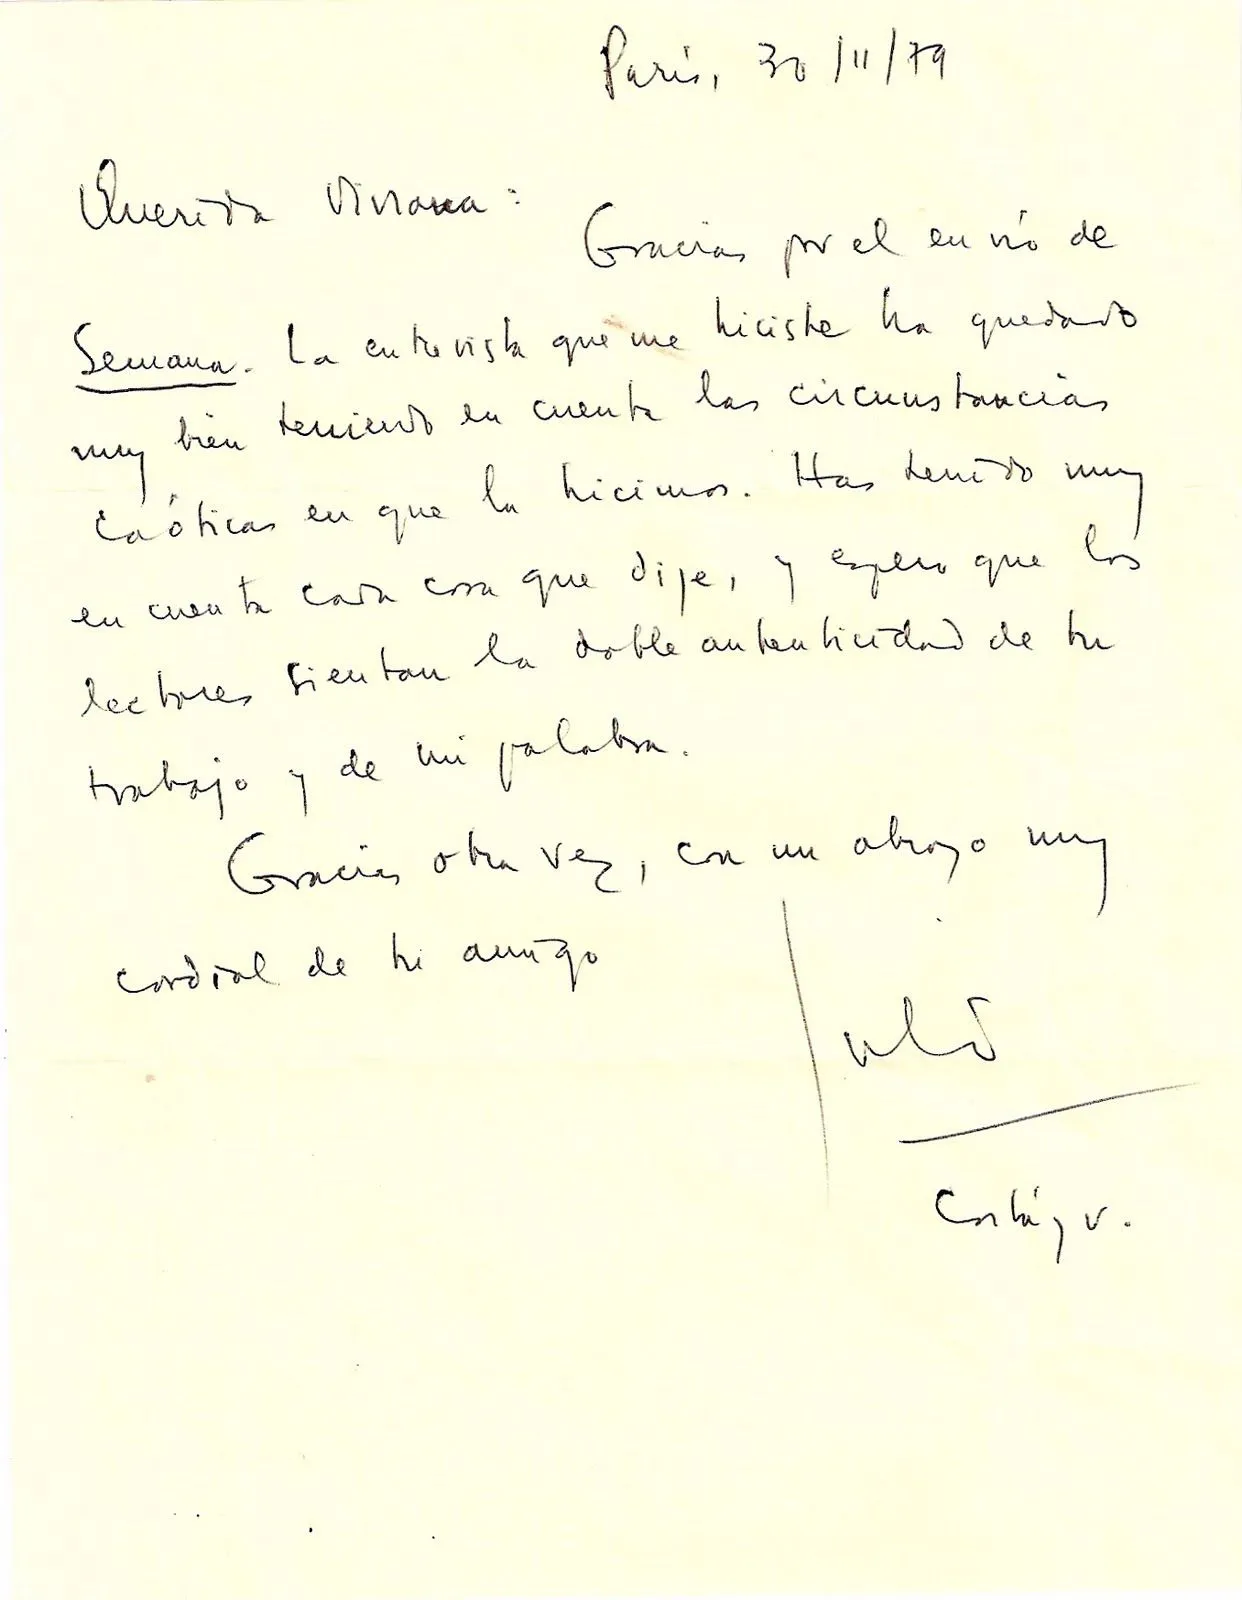 París, 30/11/79
Querida Viviana:
Gracias por el envío de
Semana. La entrevista que me hiciste ha quedado
muy bien teniendo en cuenta las circunstancias
caóticas en que la hicimos. Has tenido muy
en cuenta cada cosa que dije, y espero que los
lectores sientan la doble autenticidad de tu
trabajo y de mi palabra.
Gracias otra vez, con un abrazo muy
cordial de tu amigo
Julio
Cortázar.